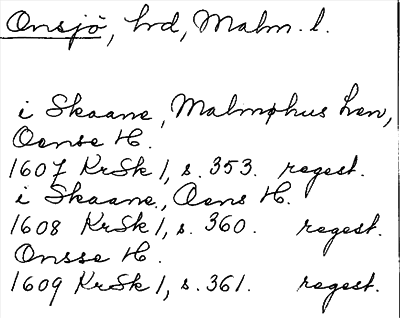 Onsjö, hrd, Malm. l.
i Skaane, Malmøhus Len,
Oense H.
1607 KrSk 1, s. 353. regest.
i Skaane, Oens H.
1608 KrSk 1, s. 360. regest.
Onsse H.
1609 KrSk 1, s. 361. regest.